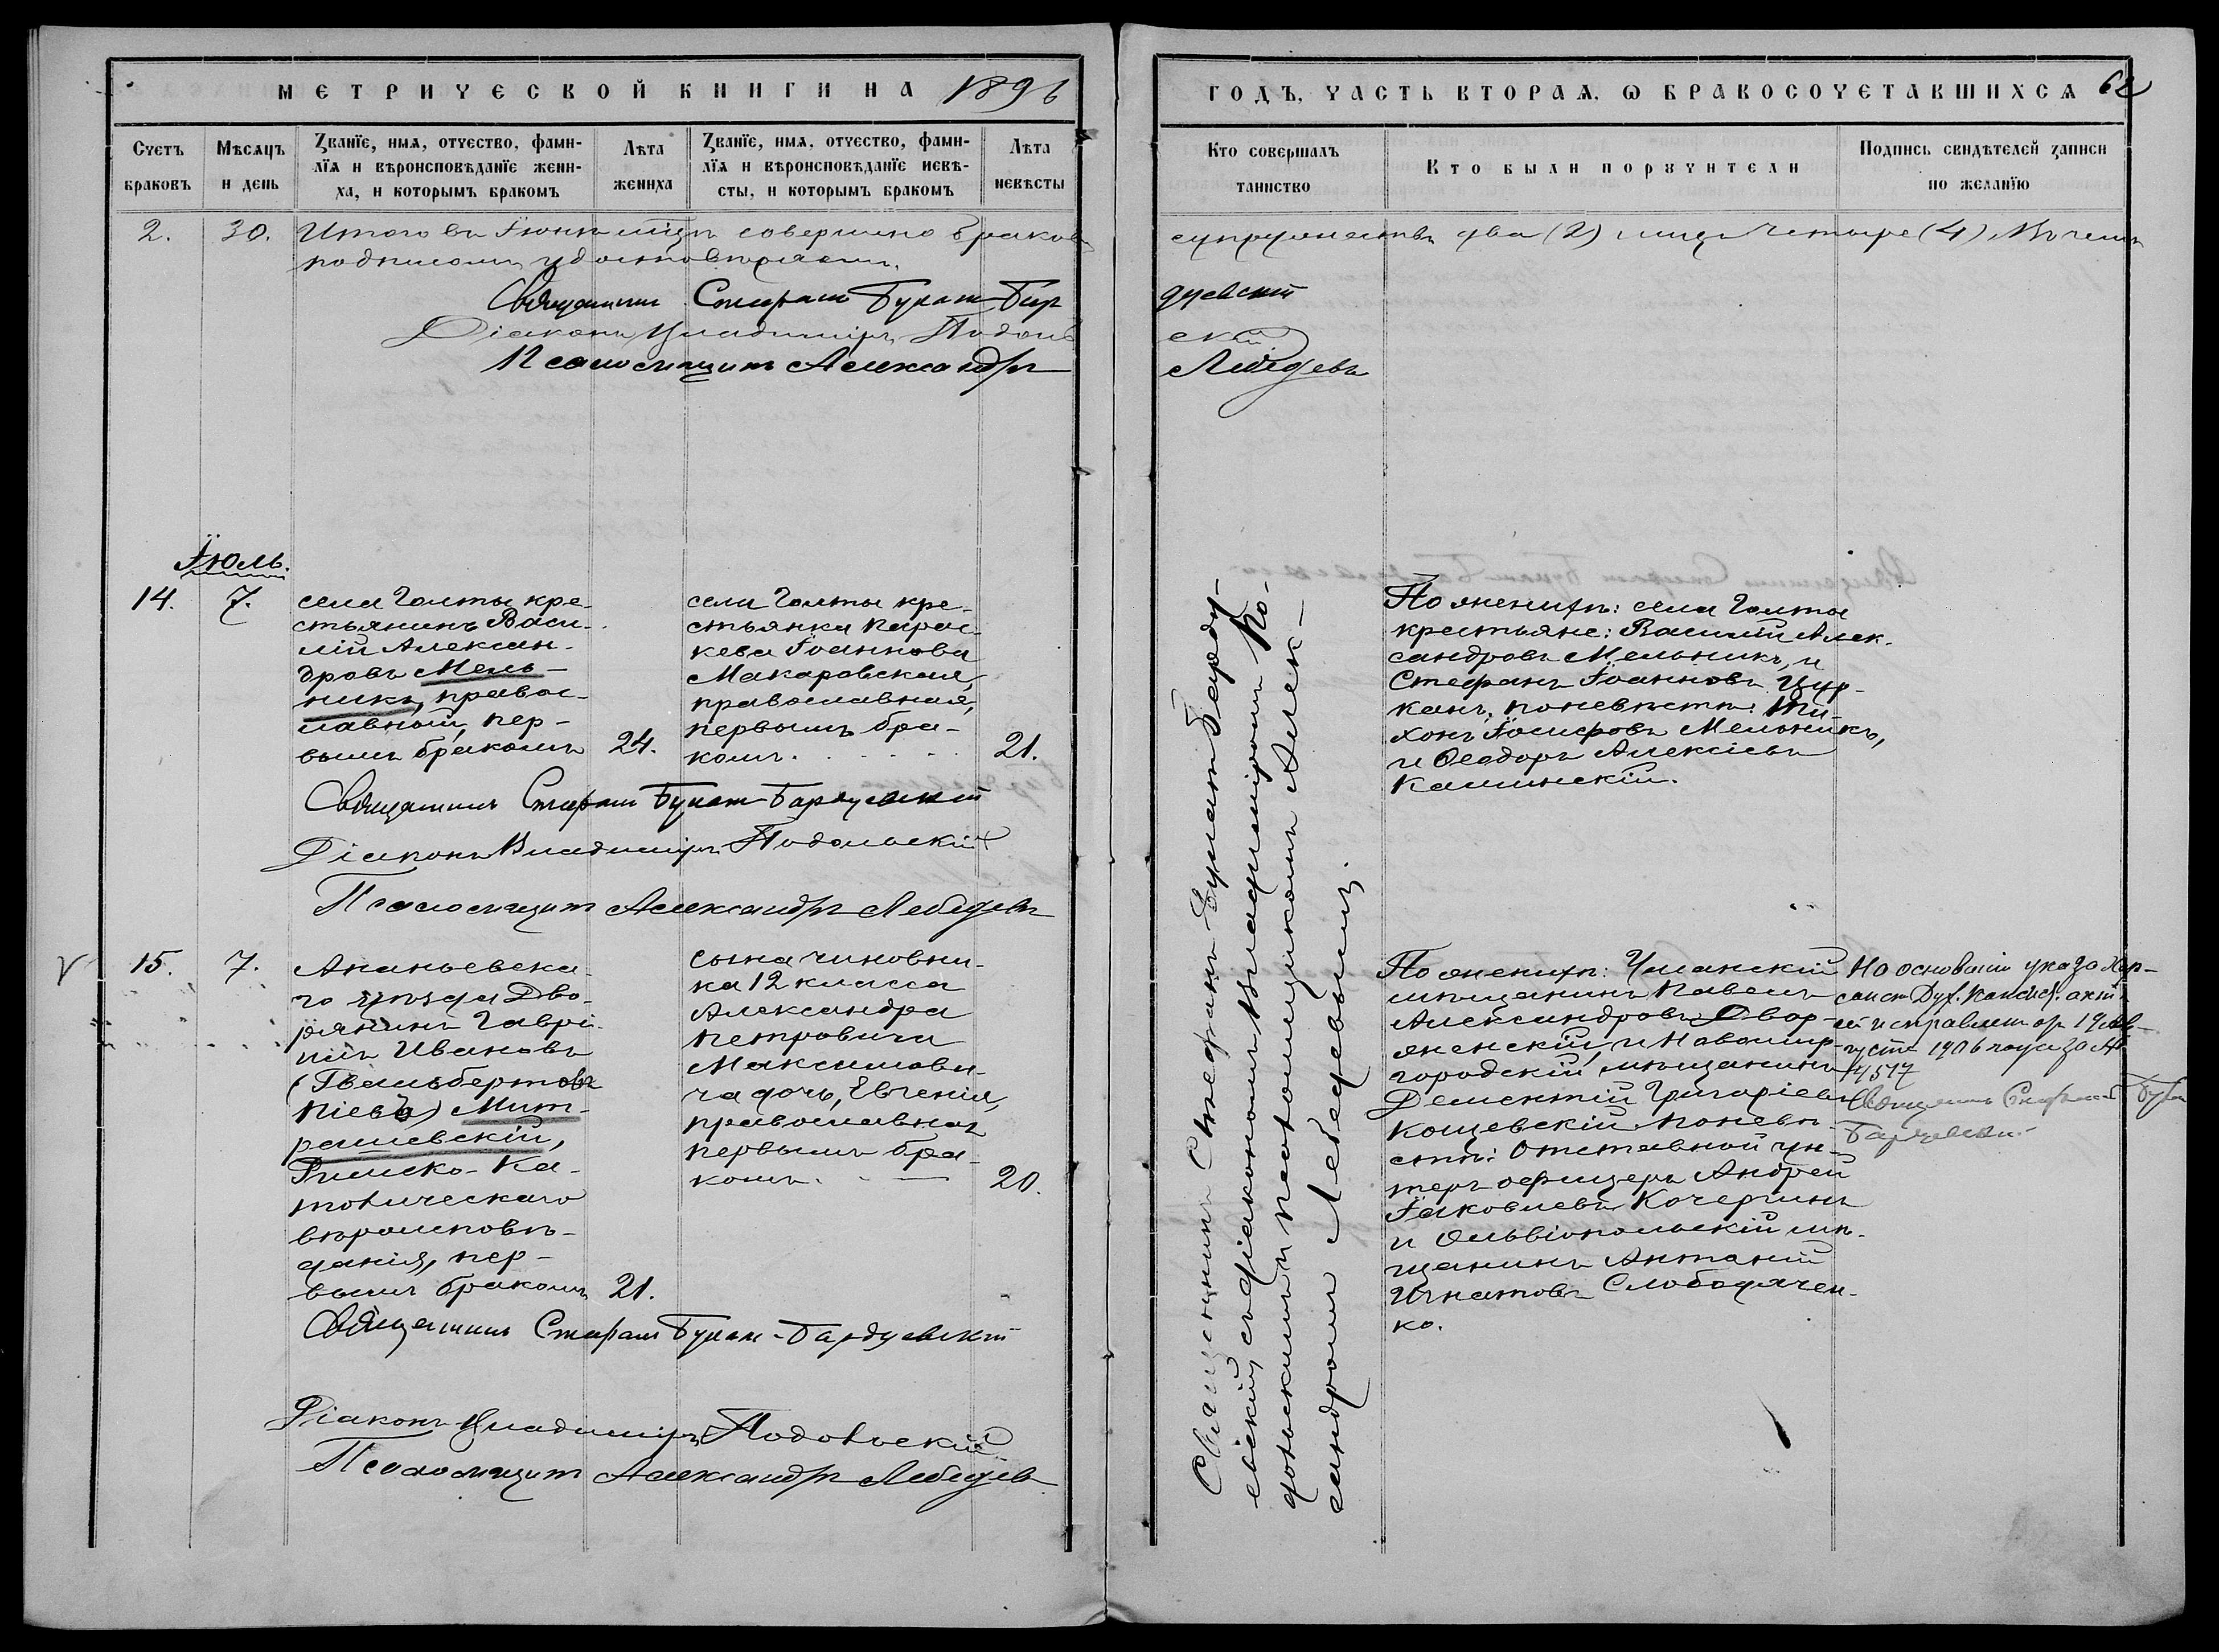 МЕТРИЧЕСКОЙ КНИГИ НА 1896
Счетъ браковъ
Мѣсяцъ и день
Званїе, имѧ, отчество, фами-
лїѧ и вѣроисповѣданїе жени-
ха, и которымъ бракомъ
Лѣта жениха
Званїе, имѧ, отчество, фами-
лїѧ и вѣроисповѣданїе невѣ-
сты, и которымъ бракомъ
Лѣта невѣсты
2.
30.
Итого въ Іюнѣ мцѣ совершено браковъ
подписомъ удостовѣряемъ.
Священникъ Стефанъ Булат-Бар
Діаконъ Владиміръ Подоль
Псаломщикъ Александръ
Іюль.
14.
7.
села Голты кре-
стьянинъ Васи-
лій Алексан-
дровъ Мель-
никъ, правос-
лавный, пер-
вымъ бракомъ
24.
села Голты кре-
стьянка Парас-
кева Іоаннова
Макаровская,
православная,
первымъ бра-
комъ.
21.
Священникъ Стефанъ Булат-Бардуевскій
Діаконъ Владиміръ Подольскій
Псаломщикъ Александръ Лебедевъ
15.
7.
Ананьевска-
го уѣзда Дво-
рянинъ Гаврі-
илъ Ивановъ
Мит-
рашевскій,
Римско-Ка-
толическаго
вѣроисповѣ-
данія, пер-
вымъ бракомъ
21.
сына чиновни-
ка 12 класса
Александра
Петровича
Максимови-
ча дочь, Евгенія,
православная
первымъ бра-
комъ.
20.
Священникъ Стефанъ Булат-Бардуевскій
Діаконъ Владиміръ Подольскій
Псаломщикъ Александръ Лебедевъ
ГОДЪ, ЧАСТЬ ВТОРАѦ, Ѡ БРАКОСОЧЕТАВШИХСѦ
62
Кто совершалъ таинство
Кто были порꙋчители
Подпись свидѣтелей записи по желанїю
супружествъ два (2) лицъ четыре (4), въ чемъ
дуевскій
скій
Лебедевъ
Священникъ Стефанъ Булат-Барду-
евскій, съ діакономъ Владиміромъ По-
дольскимъ и псаломщикомъ Алек-
сандромъ Лебедевымъ.
По женихѣ: села Голты
крестьяне: Василій Алек-
сандровъ Мельникъ, и
Стефанъ Іоанновъ Цур-
канъ, по невѣстѣ: Ти-
хонъ Іосифовъ Мельникъ,
и Ѳеодоръ Алексіевъ
Калинскій.
По женихѣ: Уманскій
мѣщанинъ Павелъ
Александровъ Двор-
янскій, и Новомир-
городскій мѣщанинъ
Дементій Григоріевъ
Кощевскій. По невѣ-
стѣ: Отставной ун-
теръ офицеръ Андрей
Іаковлевъ Кочергинъ
и Ольвіопольскій мѣ-
щанинъ Антоній
Игнатовъ Слободячен-
ко.
На основаніи указа Хер-
сонск. Дух. Консист. актъ
сей исправленъ отъ 19 Ав-
густа 1906 года за №
14517
Священникъ Стефанъ Булат
Бардуевскій